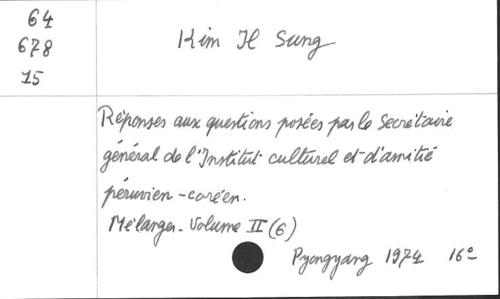 64
678
15
Kim Il Sung
Réponses aux questions posées par le Secrétaire
général de l'Institut culturel et d'amitié
péruvien-coréen.
Mélanges. Volume II (6)
Pyongyang 1974 16°